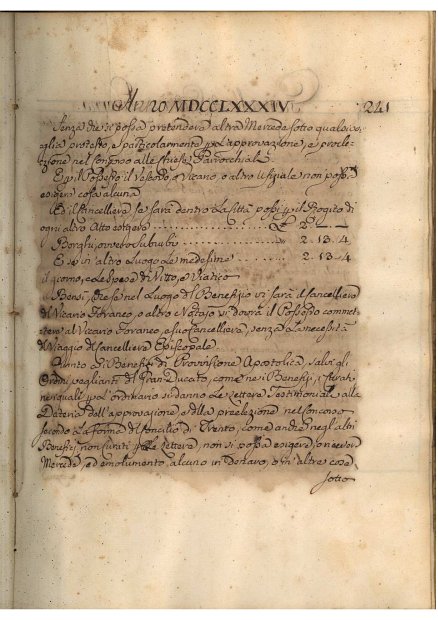 Anno MDCCLXXXIV 241
Senza che si possa pretendere altra Mercede sotto qualsivo-
glia pretesto, e particolarmente p l'approvazione, e prele-
zione nel Concorso alle Chiese Parrocchiali
E p il Possesso il Vescovo, o Vicario, o altro Uffiziale non possa
esigere cosa alcuna
Ed il Cancelliere se sarà dentro La Città possa p il Rogito di
ogni altro Atto esigere 2
Borghi, ovvero Suburbi 2. 13. 4
E se in altro Luogo Le medesime 2. 13. 4
il giorno, e Le spese di Vitto, e Viatico
Bensì, che se nel Luogo del Benefizio vi sarà Cancelliere
di Vicario Foraneo, o altro Notajo si dovrà il Possesso commet-
tere al Vicario Foraneo, e suo Cancelliere, senza La necessità
di Viaggio del Cancelliere Episcopale.
Quanto a i Benefizi di Provvisione Apostolica, salvi gli
Ordini veglianti del Gran Ducato, come ne i Benefizi Curati
ne i quali p L'Ordinario si danno Le Lettere Testimoniali alla
Dateria dell'approvazione, e della preelezione nel Concorso
secondo La forma del Concilio di Trento, come anche negl'altri
Benefizi non Curati p Le Lettere, non si possa esigere, o ricever
Mercede, ed emolumento alcuno in Denaro, o in altre cose
sotto